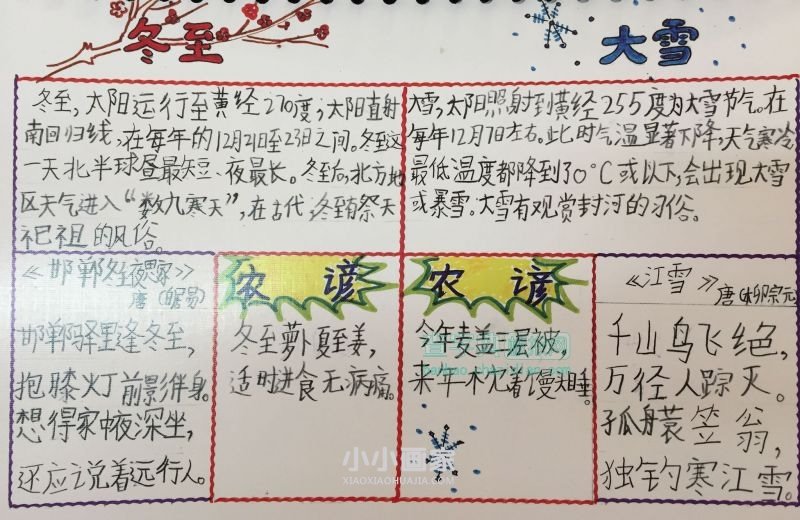 冬至
大雪
冬至，太阳运行至黄经270度；太阳直射
南回归线，在每年的12月21日至23日之间。冬至这
一天北半球昼最短、夜最长。冬至后，北方地
区天气进入“数九寒天”，在古代冬至有祭天
祀祖的风俗。
大雪，太阳照射到黄经255度为大雪节气。在
每年12月7日左右。此时气温显著下降，天气寒冷
最低温度都降到了0°C或以下，会出现大雪
或暴雪。大雪有观赏封河的习俗。
《邯郸冬至夜思家》
唐
邯郸驿里逢冬至，
抱膝灯前影伴身。
想得家中夜深坐，
还应说着远行人。
农谚
冬至萝卜夏至姜，
适时进食无病痛。
农谚
今年麦盖三层被，
来年枕着馒头睡。
《江雪》
唐(柳宗元)
千山鸟飞绝，
万径人踪灭。
孤舟蓑笠翁，
独钓寒江雪。
小小画家
XIAOXIAOHUAJIA.COM